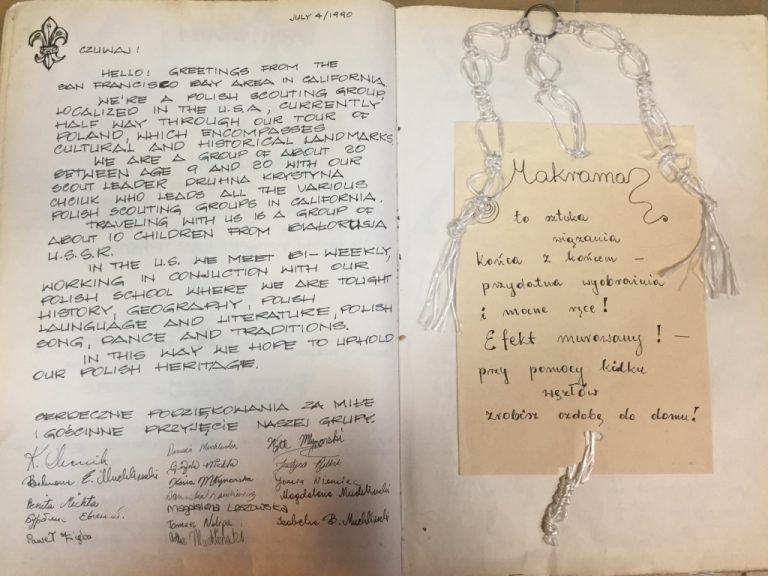 JULY 4/1990
CZUWAJ!
HELLO! GREETINGS FROM THE
SAN FRANCISCO BAY AREA IN CALIFORNIA.
WE'RE A POLISH SCOUTING GROUP,
LOCALIZED IN THE U.S.A, CURRENTLY
HALF WAY THROUGH OUR TOUR OF
POLAND, WHICH ENCOMPASSES
CULTURAL AND HISTORICAL LANDMARKS.
WE ARE A GROUP OF ABOUT 20
BETWEEN AGE 9 AND 20 WITH OUR
SCOUT LEADER DRUHNA KRYSTYNA
CHCIUK WHO LEADS ALL THE VARIOUS
POLISH SCOUTING GROUPS IN CALIFORNIA.
TRAVELING WITH US IS A GROUP OF
ABOUT 10 CHILDREN FROM BIAŁORUSIA
U.S.S.R.
IN THE U.S. WE MEET BI-WEEKLY,
WORKING IN CONJUCTION WITH OUR
POLISH SCHOOL WHERE WE ARE TOUGHT
HISTORY, GEOGRAPHY, POLISH
LAUNGUAGE AND LITERATURE, POLISH
SONG, DANCE AND TRADITIONS.
IN THIS WAY WE HOPE TO UPHOLD
OUR POLISH HERITAGE.
SERDECZNE PODZIĘKOWANIA ZA MIŁE
I GOŚCINNE PRZYJĘCIE NASZEJ GRUPY.
K.
E. Muchlinski
Beata Mikta
Paweł Zięba
Danuta Muchlinska
Maria Młynarska
Magdalena Laszowska
Tomasz Nalepa
Justyna
Joasia Niemiec
Magdalena Muchlinski
Izabella B. Muchlinski
Makrama
to sztuka
wiązania
końca z końcem –
przydatna wyobraźnia
i mocne ręce!
Efekt murowany! –
przy pomocy kilku
węzłów
zrobisz ozdobę do domu!